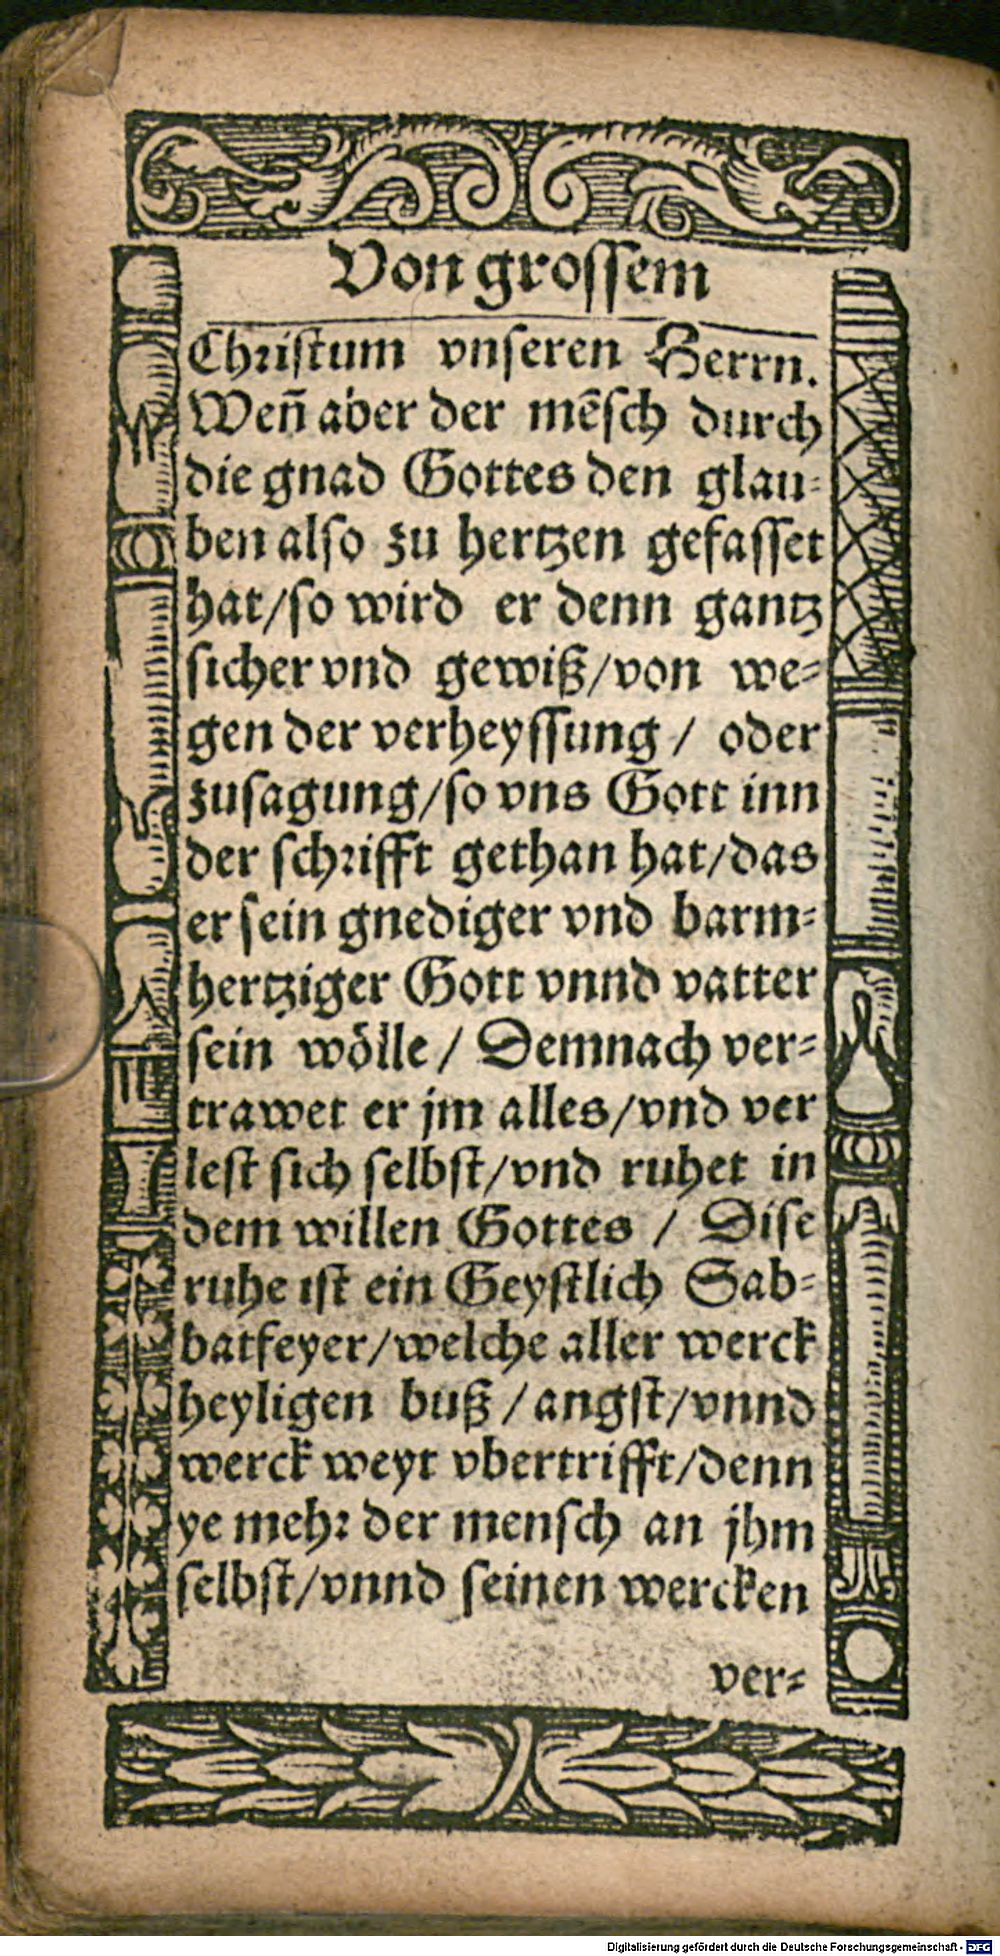 Von grossem
Christum vnseren Herrn.
Weñ aber der mẽsch durch
die gnad Gottes den glau-
ben also zu hertzen gefasset
hat/so wird er denn gantz
sicher vnd gewiß/von we-
gen der verheyssung / oder
zusagung/so vns Gott inn
der schrifft gethan hat/das
er sein gnediger vnd barm-
hertziger Gott vnnd vatter
sein wölle / Demnach ver-
trawet er jm alles/vnd ver
lest sich selbst/vnd ruhet in
dem willen Gottes / Dise
ruhe ist ein Geystlich Sab-
batfeyer/welche aller werck
heyligen buß / angst/vnnd
werck weyt vbertrifft/denn
ye mehr der mensch an jhm
selbst/vnnd seinen wercken
ver-
Digitalisierung gefördert durch die Deutsche Forschungsgemeinschaft - DFG